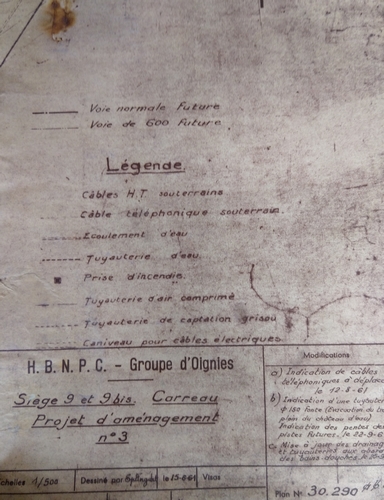 Voie normale future
Voie de 600 future
Légende.
Câbles H.T souterrains
Câble téléphonique souterrain.
Ecoulement d'eau
Tuyauterie d'eau.
Prise d'incendie.
Tuyauterie d'air comprimé
Tuyauterie de captation grisou
Caniveau pour câbles électriques
H. B. N. P. C. - Groupe d'Oignies
Siège 9 et 9 bis. Carreau
Projet d'aménagement
n° 3
Modifications
a) Indication de câbles
téléphoniques à déplace
le 12-8-61
b) Indication d'une tuyauter
plein du château d'eau)
Indication des pentes des
pistes futures. le 22-9-6
c) Mise à jour des drainag
et tuyauteries aux abord
des bains douches.
chelles 1/500
Dessiné par
le 15-5-61
Visas
Plan N° 30.290 a b